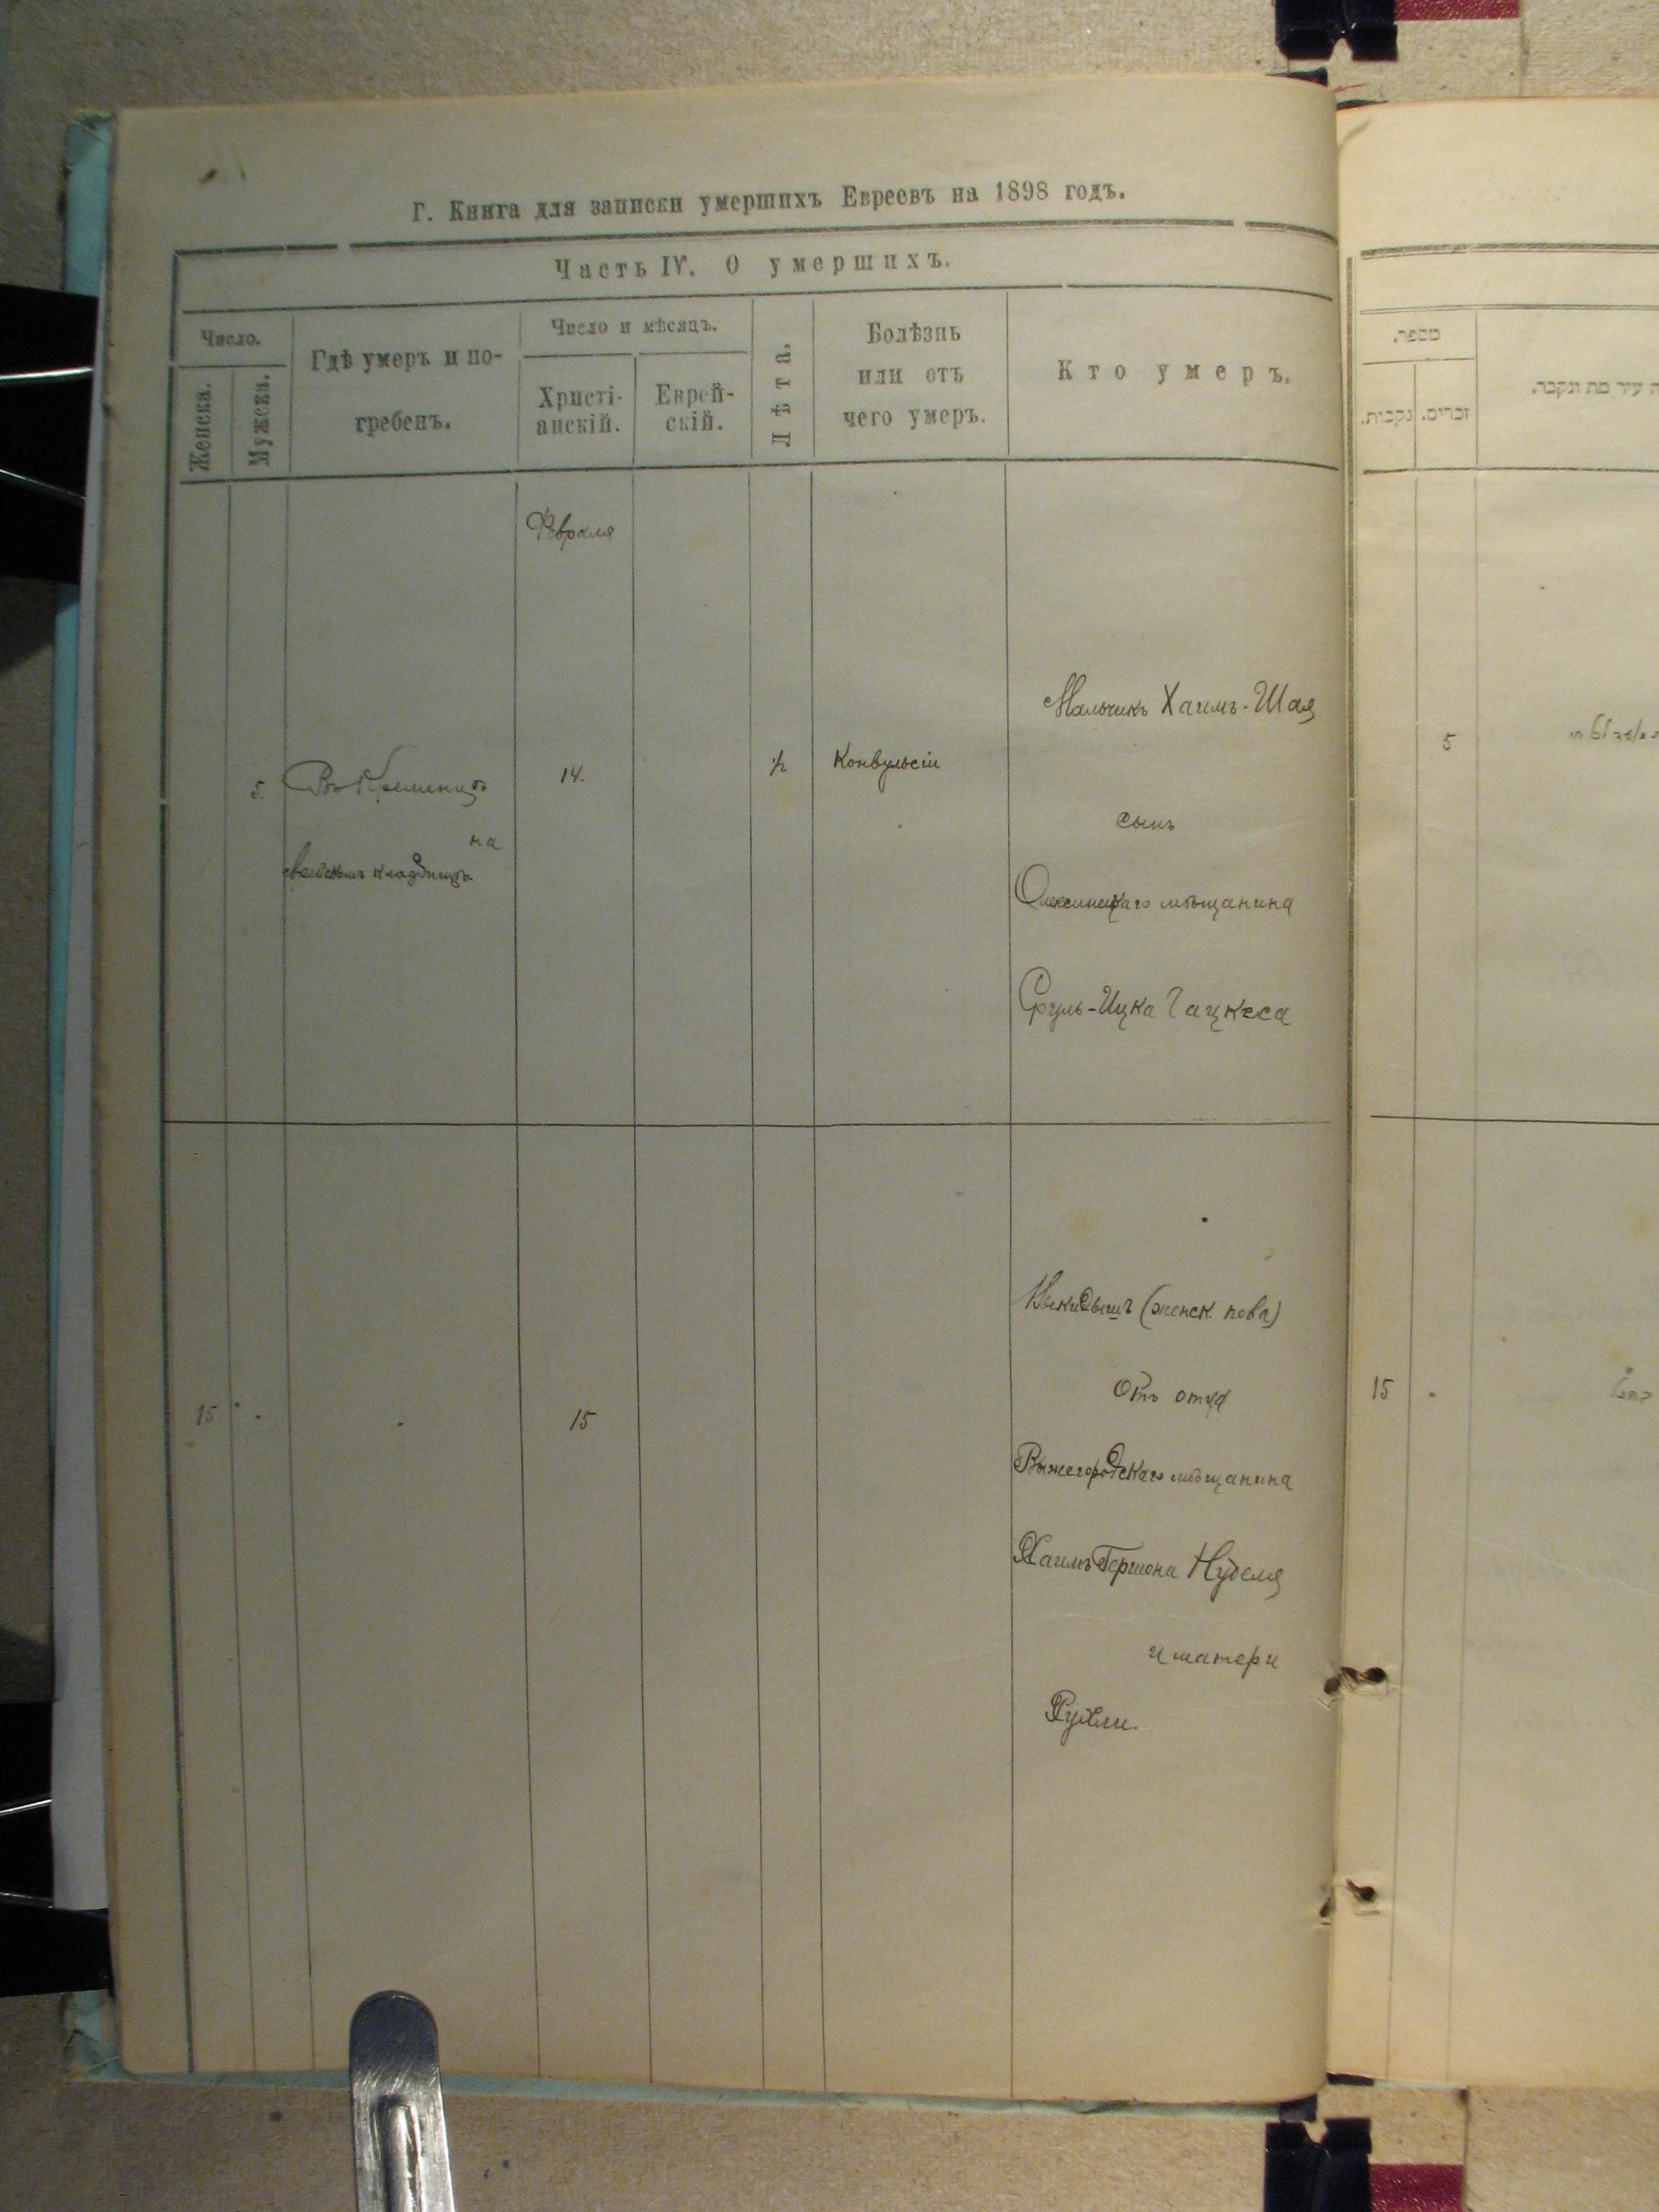 Г. Книга для записки умершихъ Евреевъ на 1898 годъ.
Часть IV. О умершихъ.
Число.
Женска.
Мужеска.
Гдѣ умеръ и по-
гребенъ.
Число и мѣсяцъ.
Христі-
анскій.
Еврей-
скій.
Лѣта.
Болѣзнь
или отъ
чего умеръ.
Кто умеръ.
Февраля
5.
Въ Кременцѣ
на
кладбищѣ
14.
½
Конвульсіи
Мальчикъ Хаимъ-Шая
сынъ
Олексинецкаго мѣщанина
Сруль-Ицка Гацкеса
15
15
Выкидышъ (женск. пола)
Отъ отца
Вышегородскаго мѣщанина
Хаимъ Гершона Нуделя
и матери
Рухли.
מספר.
נקבות.
זכרים.
עיר מת ונקבר.
5
15